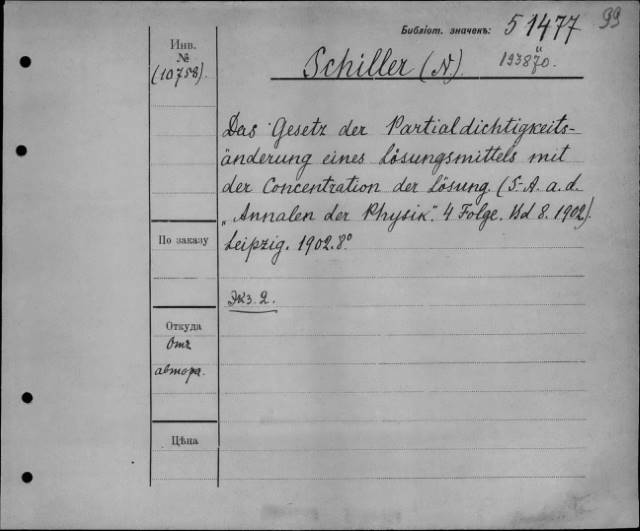 99
Библіот. значекъ: 51477
Инв.
№
(10758).
Schiller (N)
Das Gesetz der Partialdichtigkeits-
änderung eines Lösungsmittels mit
der Concentration der Lösung. (S-A. a. d.
„Annalen der Physik". 4 Folge. Bd 8. 1902).
По заказу
Leipzig. 1902. 8°
Экз. 2.
Откуда
Отъ
автора.
Цѣна